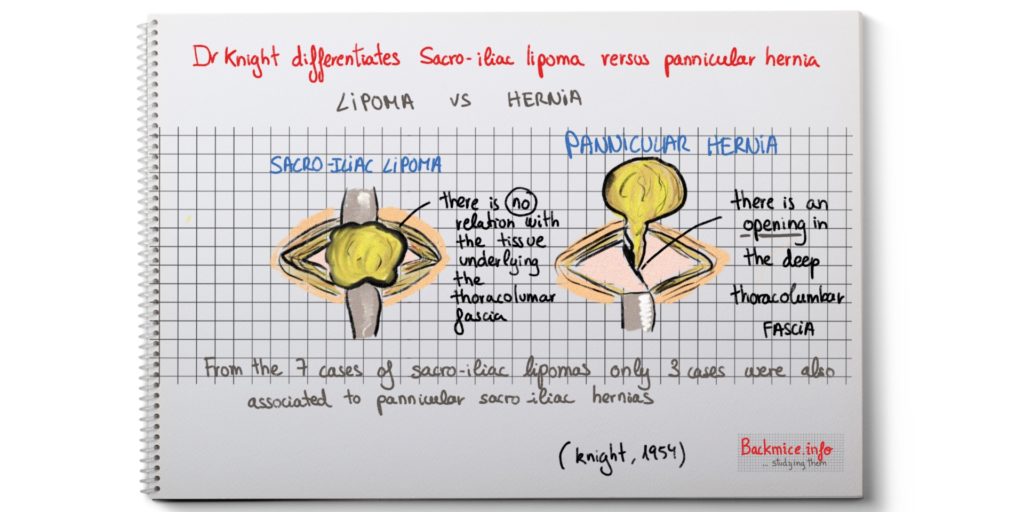 Dr Knight differentiates Sacro-iliac lipoma versus pannicular hernia
LiPOMA VS HERNiA
SACRO-iLiAC LiPOMA
there is no
relation with
the tissue
underlying
the
thoracolumar
fascia
PANNICULAR HERNiA
there is an
opening in
the deep
thoracolumbar
FASCiA
From the 7 cases of sacro-iliac lipomas only 3 cases were also
associated to pannicular sacro iliac hernias
(knight, 1954)
Backmice.info
... studying them